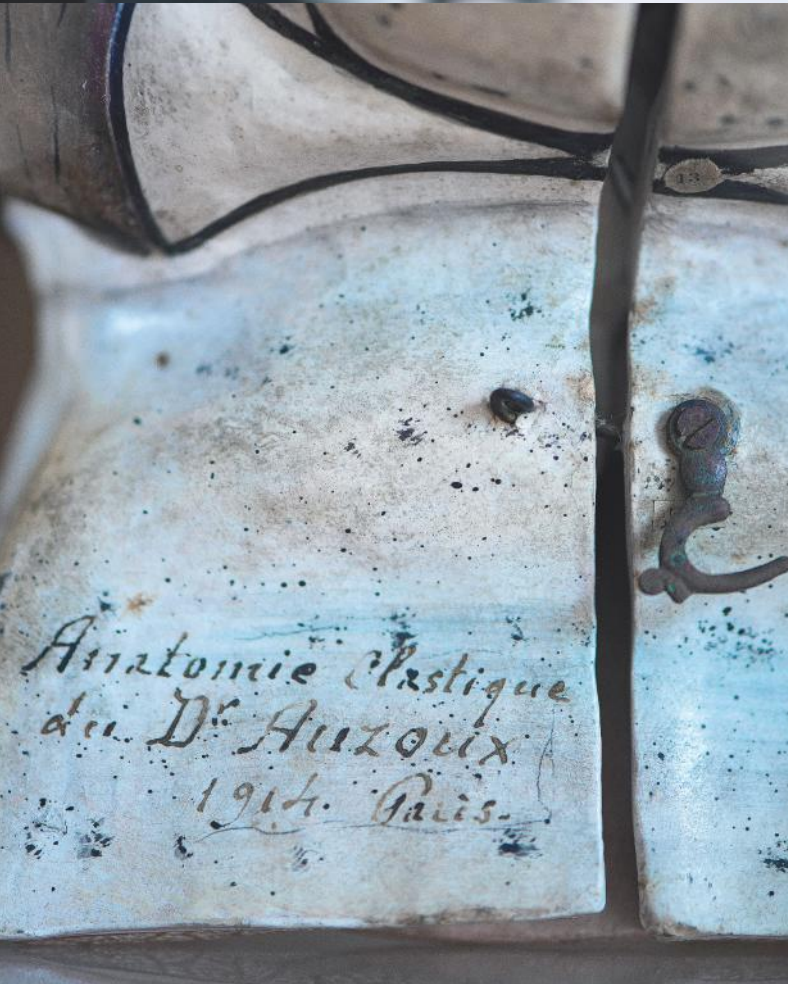 13
Anatomie Clastique
du Dr Auzoux
1914. Paris.